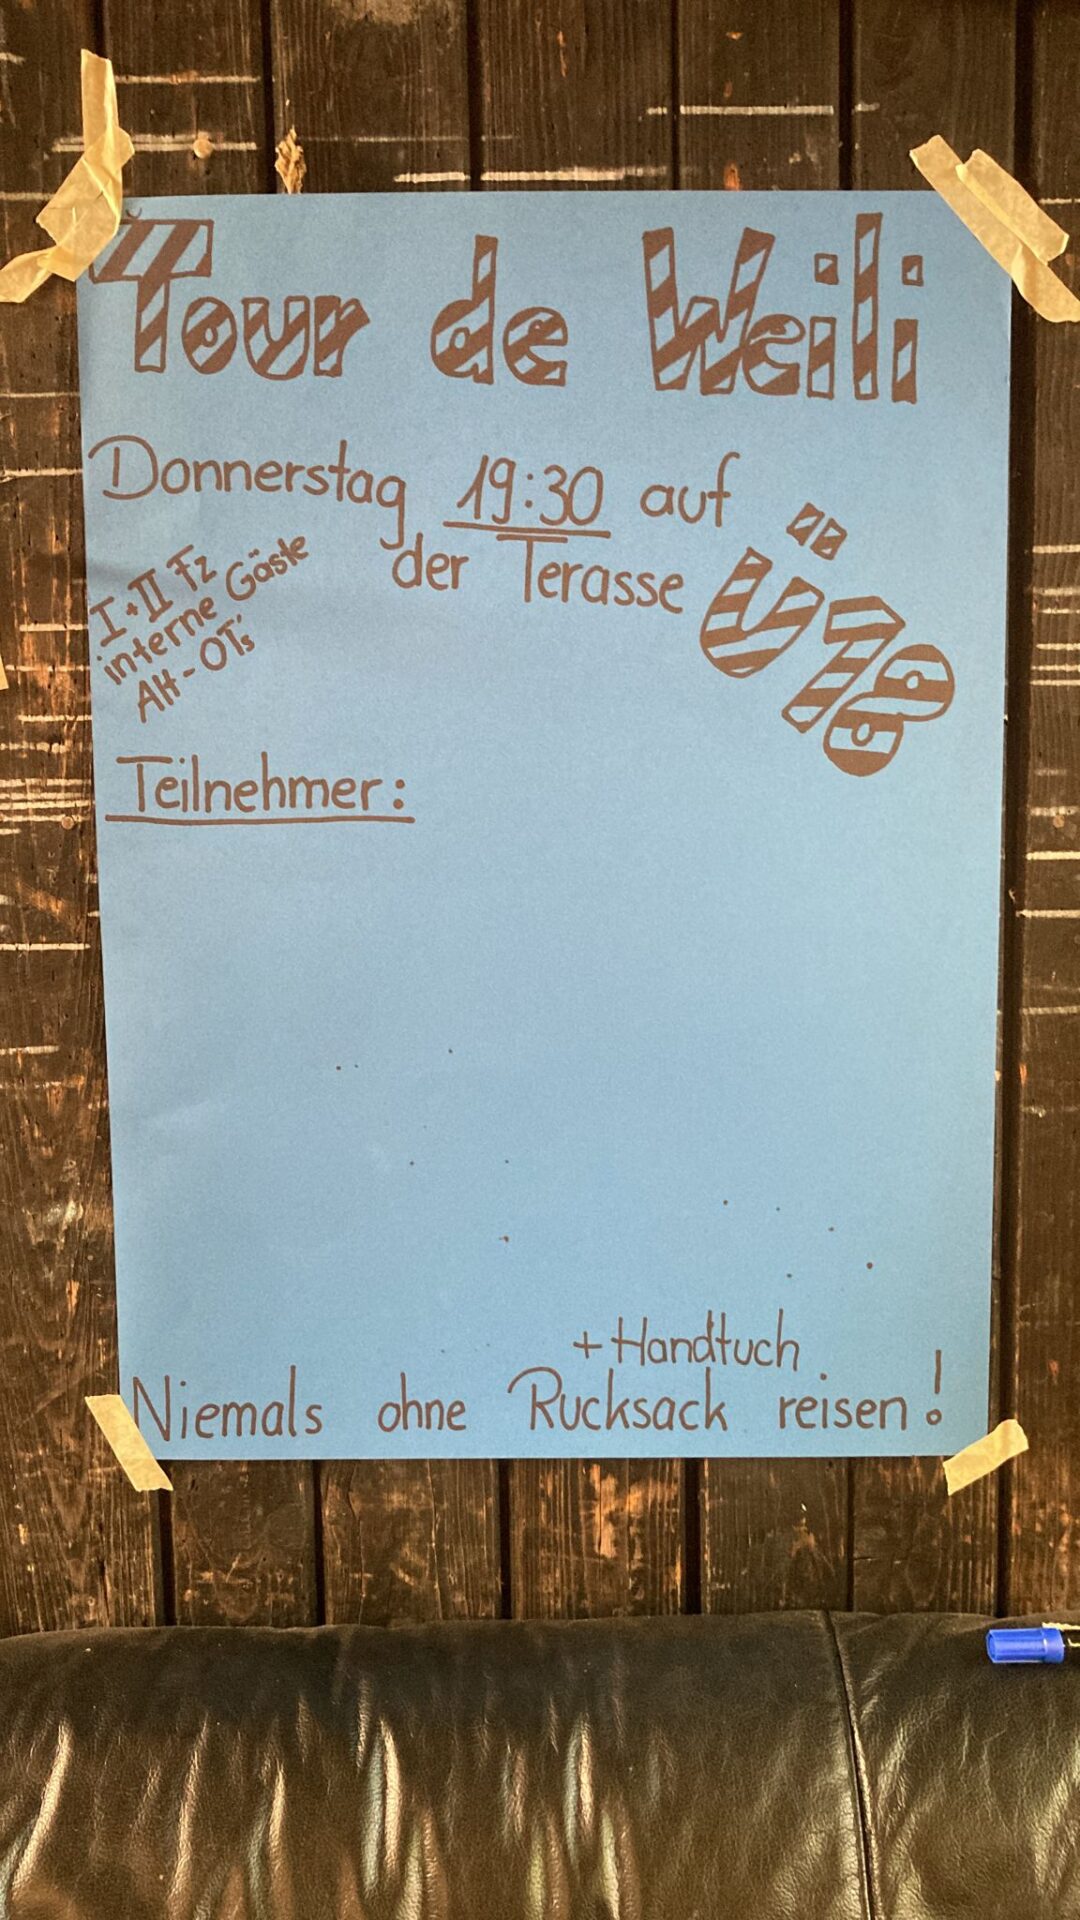 Tour de Weili
Donnerstag 19:30 auf
der Terasse
Ü18
I+II Fz
interne Gäste
Alt-OT's
Teilnehmer:
+ Handtuch
Niemals ohne Rucksack reisen!